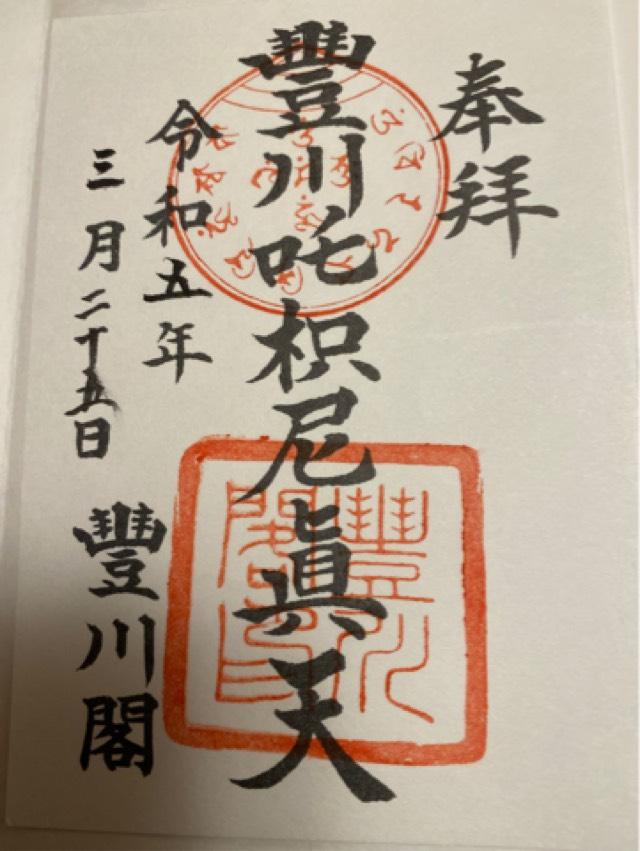 奉拜
豐川吒枳尼眞天
令和五年
三月二十五日
豐川閣
豐川閣印